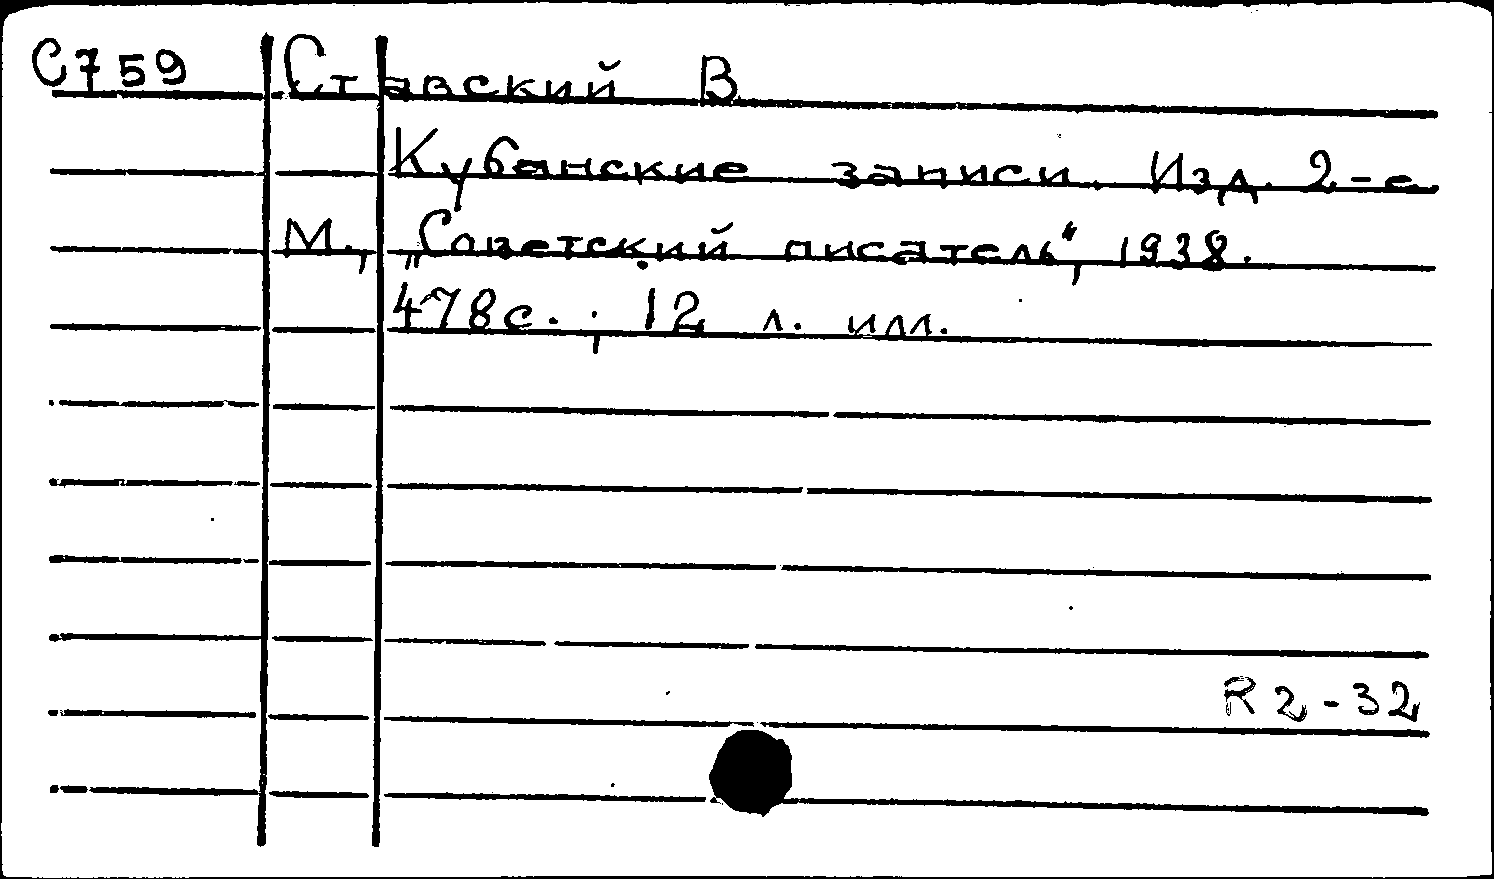 С759 Ставский В
Кубанские записи. Изд. 2-е
М., „Советский писатель“, 1938.
478с. ; 12 л. илл.
R2-32